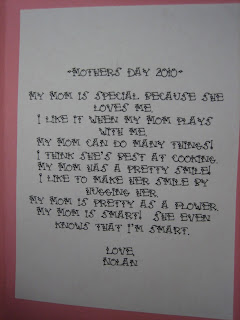 ~MOTHERS DAY 2010~
MY MOM IS SPECIAL BECAUSE SHE
LOVES ME.
I LIKE IT WHEN MY MOM PLAYS
WITH ME.
MY MOM CAN DO MANY THINGS!
I THINK SHE'S BEST AT COOKING.
MY MOM HAS A PRETTY SMILE!
I LIKE TO MAKE HER SMILE BY
HUGGING HER.
MY MOM IS PRETTY AS A FLOWER.
MY MOM IS SMART! SHE EVEN
KNOWS THAT I'M SMART.
LOVE,
NOLAN